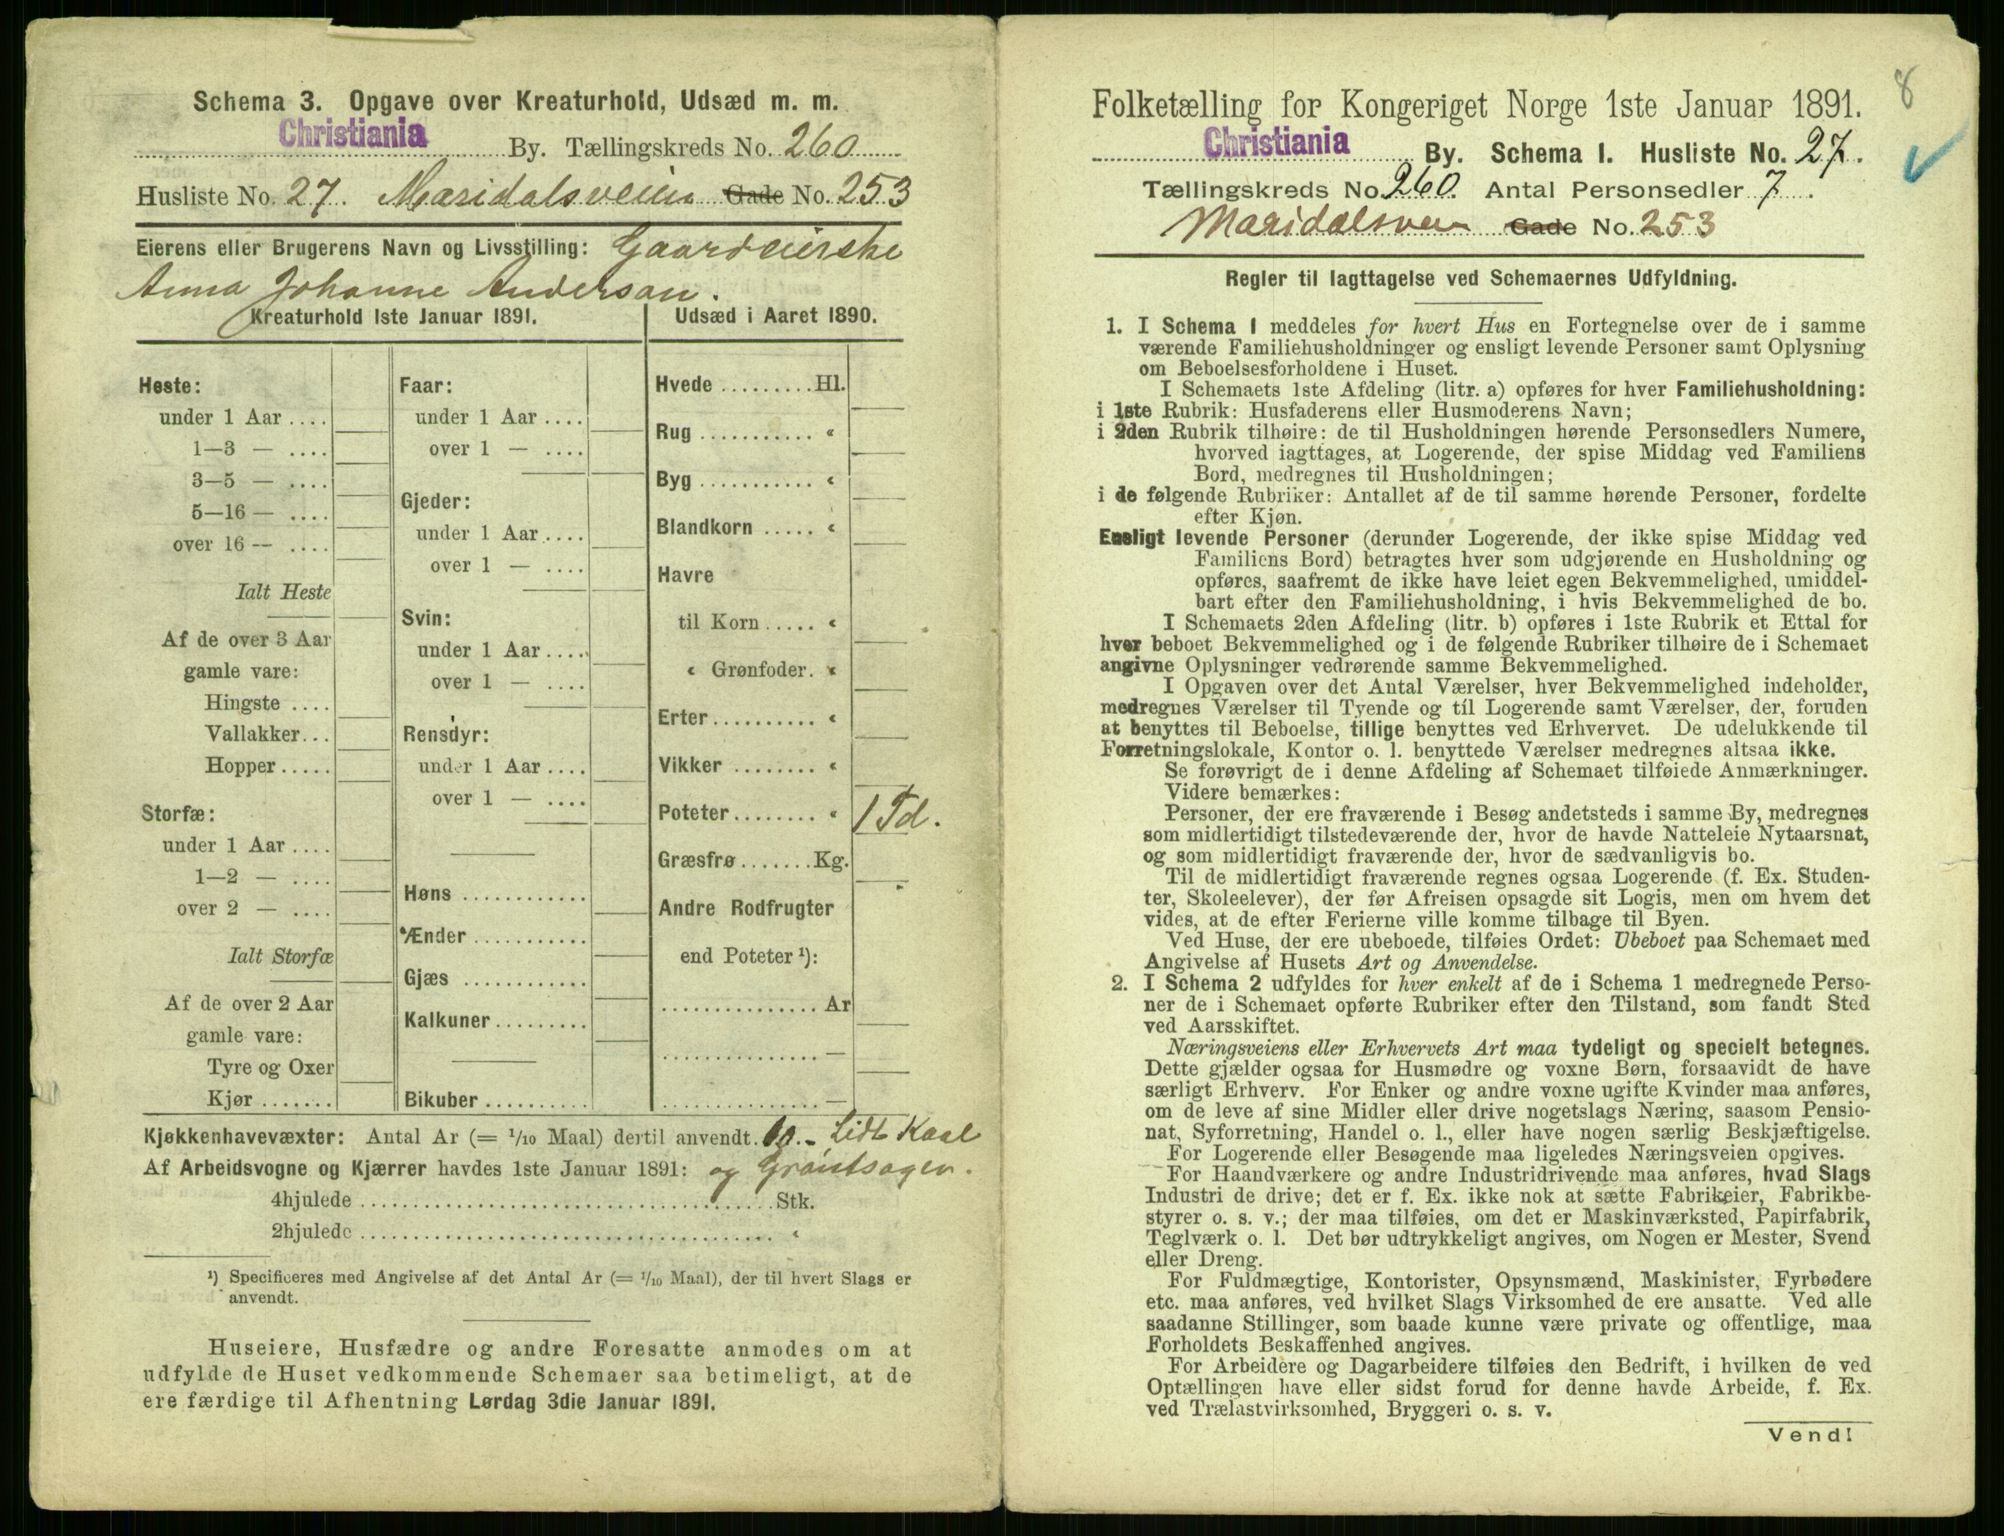 Schema 3. Opgave over Kreaturhold, Udsæd m. m.
Christiania By. Tællingskreds No. 260
Husliste No. 27. Maridalsveien Gade No. 253
Eierens eller Brugerens Navn og Livsstilling: Gaardeierske
Anna Johanne Anderson.
Kreaturhold 1ste Januar 1891.
Heste:
under 1 Aar ....
1—3 — ....
3—5 — ....
5—16 — ....
over 16 — ....
Ialt Heste
Af de over 3 Aar
gamle vare:
Hingste ....
Vallakker...
Hopper.....
Storfæ:
under 1 Aar ....
1—2 — ....
over 2 — ....
Ialt Storfæ
Af de over 2 Aar
gamle vare:
Tyre og Oxer
Kjør .......
Faar:
under 1 Aar ....
over 1 — ....
Gjeder:
under 1 Aar ....
over 1 — ....
Svin:
under 1 Aar ....
over 1 — ....
Rensdyr:
under 1 Aar ....
over 1 — ....
Høns ............
Ænder ...........
Gjæs ............
Kalkuner.........
Bikuber ..........
Udsæd i Aaret 1890.
Hvede .........Hl.
Rug ........... «
Byg ........... «
Blandkorn ..... «
Havre
til Korn ..... «
« Grønfoder. «
Erter.......... «
Vikker ........ «
Poteter........ « 1 Td.
Græsfrø .......Kg.
Andre Rodfrugter
end Poteter ¹):
............... Ar
............... —
............... —
Kjøkkenhavevæxter: Antal Ar (= 1/10 Maal) dertil anvendt. Lidt Kaal
Af Arbeidsvogne og Kjærrer havdes 1ste Januar 1891: og Grøntsager.
4hjulede ........................................ Stk.
2hjulede ........................................ «
¹) Specificeres med Angivelse af det Antal Ar (= 1/10 Maal), der til hvert Slags er
anvendt.
Huseiere, Husfædre og andre Foresatte anmodes om at
udfylde de Huset vedkommende Schemaer saa betimeligt, at de
ere færdige til Afhentning Lørdag 3die Januar 1891.
8
Folketælling for Kongeriget Norge 1ste Januar 1891.
Christiania By. Schema I. Husliste No. 27.
Tællingskreds No. 260 Antal Personsedler 7.
Maridalsvei Gade No. 253
Regler til Iagttagelse ved Schemaernes Udfyldning.
1. I Schema I meddeles for hvert Hus en Fortegnelse over de i samme
værende Familiehusholdninger og ensligt levende Personer samt Oplysning
om Beboelsesforholdene i Huset.
I Schemaets 1ste Afdeling (litr. a) opføres for hver Familiehusholdning:
i 1ste Rubrik: Husfaderens eller Husmoderens Navn;
i 2den Rubrik tilhøire: de til Husholdningen hørende Personsedlers Numere,
hvorved iagttages, at Logerende, der spise Middag ved Familiens
Bord, medregnes til Husholdningen;
i de følgende Rubriker: Antallet af de til samme hørende Personer, fordelte
efter Kjøn.
Ensligt levende Personer (derunder Logerende, der ikke spise Middag ved
Familiens Bord) betragtes hver som udgjørende en Husholdning og
opføres, saafremt de ikke have leiet egen Bekvemmelighed, umiddel-
bart efter den Familiehusholdning, i hvis Bekvemmelighed de bo.
I Schemaets 2den Afdeling (litr. b) opføres i 1ste Rubrik et Ettal for
hver beboet Bekvemmelighed og i de følgende Rubriker tilhøire de i Schemaet
angivne Oplysninger vedrørende samme Bekvemmelighed.
I Opgaven over det Antal Værelser, hver Bekvemmelighed indeholder,
medregnes Værelser til Tyende og til Logerende samt Værelser, der, foruden
at benyttes til Beboelse, tillige benyttes ved Erhvervet. De udelukkende til
Forretningslokale, Kontor o. l. benyttede Værelser medregnes altsaa ikke.
Se forøvrigt de i denne Afdeling af Schemaet tilføiede Anmærkninger.
Videre bemærkes:
Personer, der ere fraværende i Besøg andetsteds i samme By, medregnes
som midlertidigt tilstedeværende der, hvor de havde Natteleie Nytaarsnat,
og som midlertidigt fraværende der, hvor de sædvanligvis bo.
Til de midlertidigt fraværende regnes ogsaa Logerende (f. Ex. Studen-
ter, Skoleelever), der før Afreisen opsagde sit Logis, men om hvem det
vides, at de efter Ferierne ville komme tilbage til Byen.
Ved Huse, der ere ubeboede, tilføies Ordet: Ubeboet paa Schemaet med
Angivelse af Husets Art og Anvendelse.
2. I Schema 2 udfyldes for hver enkelt af de i Schema 1 medregnede Perso-
ner de i Schemaet opførte Rubriker efter den Tilstand, som fandt Sted
ved Aarsskiftet.
Næringsveiens eller Erhvervets Art maa tydeligt og specielt betegnes.
Dette gjælder ogsaa for Husmødre og voxne Børn, forsaavidt de have
særligt Erhverv. For Enker og andre voxne ugifte Kvinder maa anføres,
om de leve af sine Midler eller drive nogetslags Næring, saasom Pensio-
nat, Syforretning, Handel o. l., eller have nogen særlig Beskjæftigelse.
For Logerende eller Besøgende maa ligeledes Næringsveien opgives.
For Haandværkere og andre Industridrivende maa anføres, hvad Slags
Industri de drive; det er f. Ex. ikke nok at sætte Fabrikeier, Fabrikbe-
styrer o. s. v.; der maa tilføies, om det er Maskinværksted, Papirfabrik,
Teglværk o. l. Det bør udtrykkeligt angives, om Nogen er Mester, Svend
eller Dreng.
For Fuldmægtige, Kontorister, Opsynsmænd, Maskinister, Fyrbødere
etc. maa anføres, ved hvilket Slags Virksomhed de ere ansatte. Ved alle
saadanne Stillinger, som baade kunne være private og offentlige, maa
Forholdets Beskaffenhed angives.
For Arbeidere og Dagarbeidere tilføies den Bedrift, i hvilken de ved
Optællingen have eller sidst forud for denne havde Arbeide, f. Ex.
ved Trælastvirksomhed, Bryggeri o. s. v.
Vend!